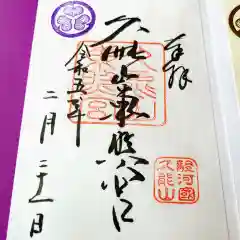 奉拝
駿河國
久能山
久能山東照宮
令和五年
二月二十一日